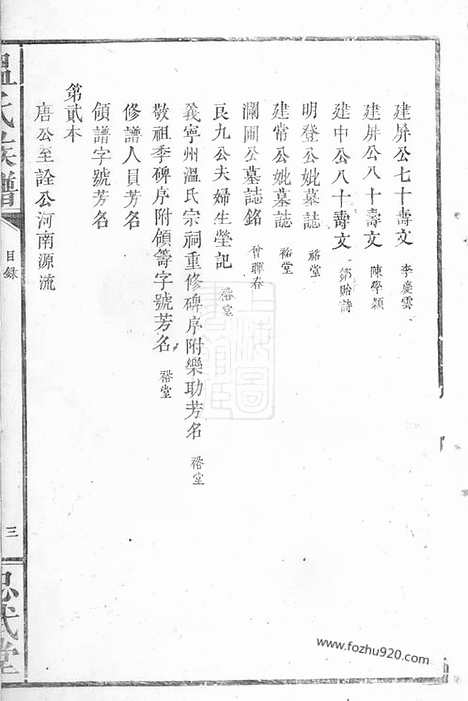 建屏公七十壽文 李慶雲
建屏公八十壽文 陳學穎
建中公八十壽文 鄧貽詩
明登公妣墓誌 裕堂
建常公妣墓誌 裕堂
瀾圃公墓誌銘 曾暉春
良九公夫婦生塋記 裕堂
義寧州溫氏宗祠重修碑序附樂助芳名 裕堂
敬祖季碑序附領籌字號芳名 裕堂
修譜人員芳名
領譜字號芳名
第貳本
唐公至詮公河南源流
溫氏族譜
目錄
三
www.fozhu920.com